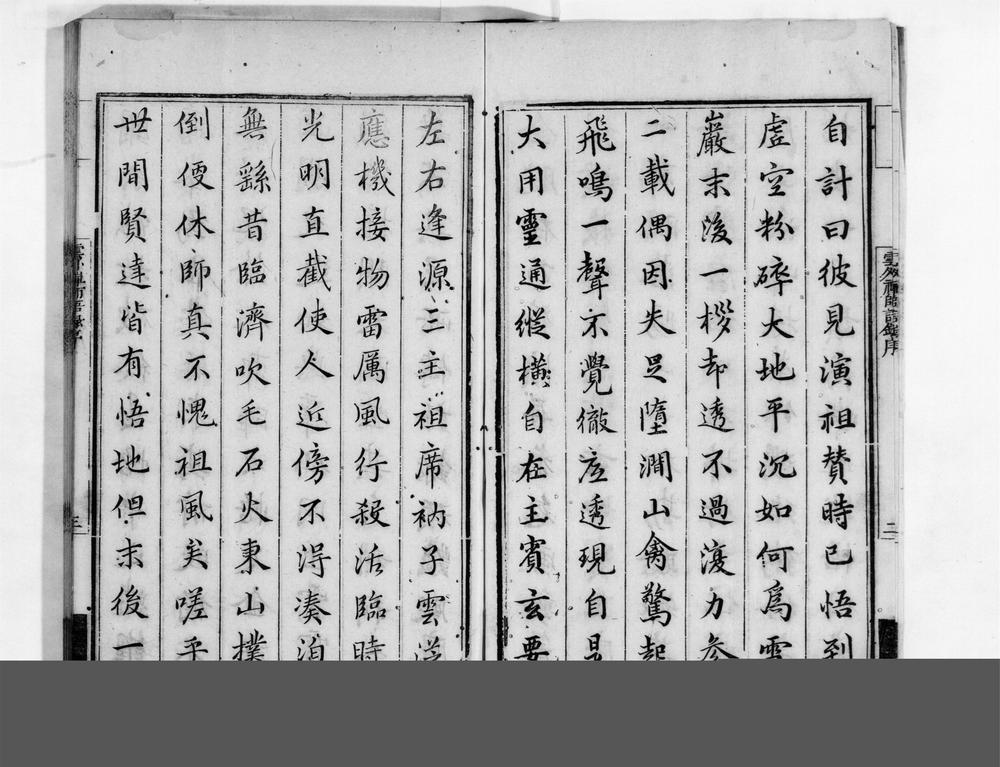 自計曰彼見演祖贊時已悟到
虛空粉碎大地平沉如何爲雪
巖末後一拶却透不過復力參
二載偶因失足墮澗山禽驚起
飛鳴一聲不覺徹底透現自是
大用靈通縱橫自在主賓玄要
左右逢源三主祖席衲子雲
應機接物雷厲風行殺活臨時
光明直截使人近傍不得湊泊
無繇昔臨濟吹毛石火東山撲
倒便休師真不愧祖風矣嗟乎
世間賢達皆有悟地但末後一
二
三